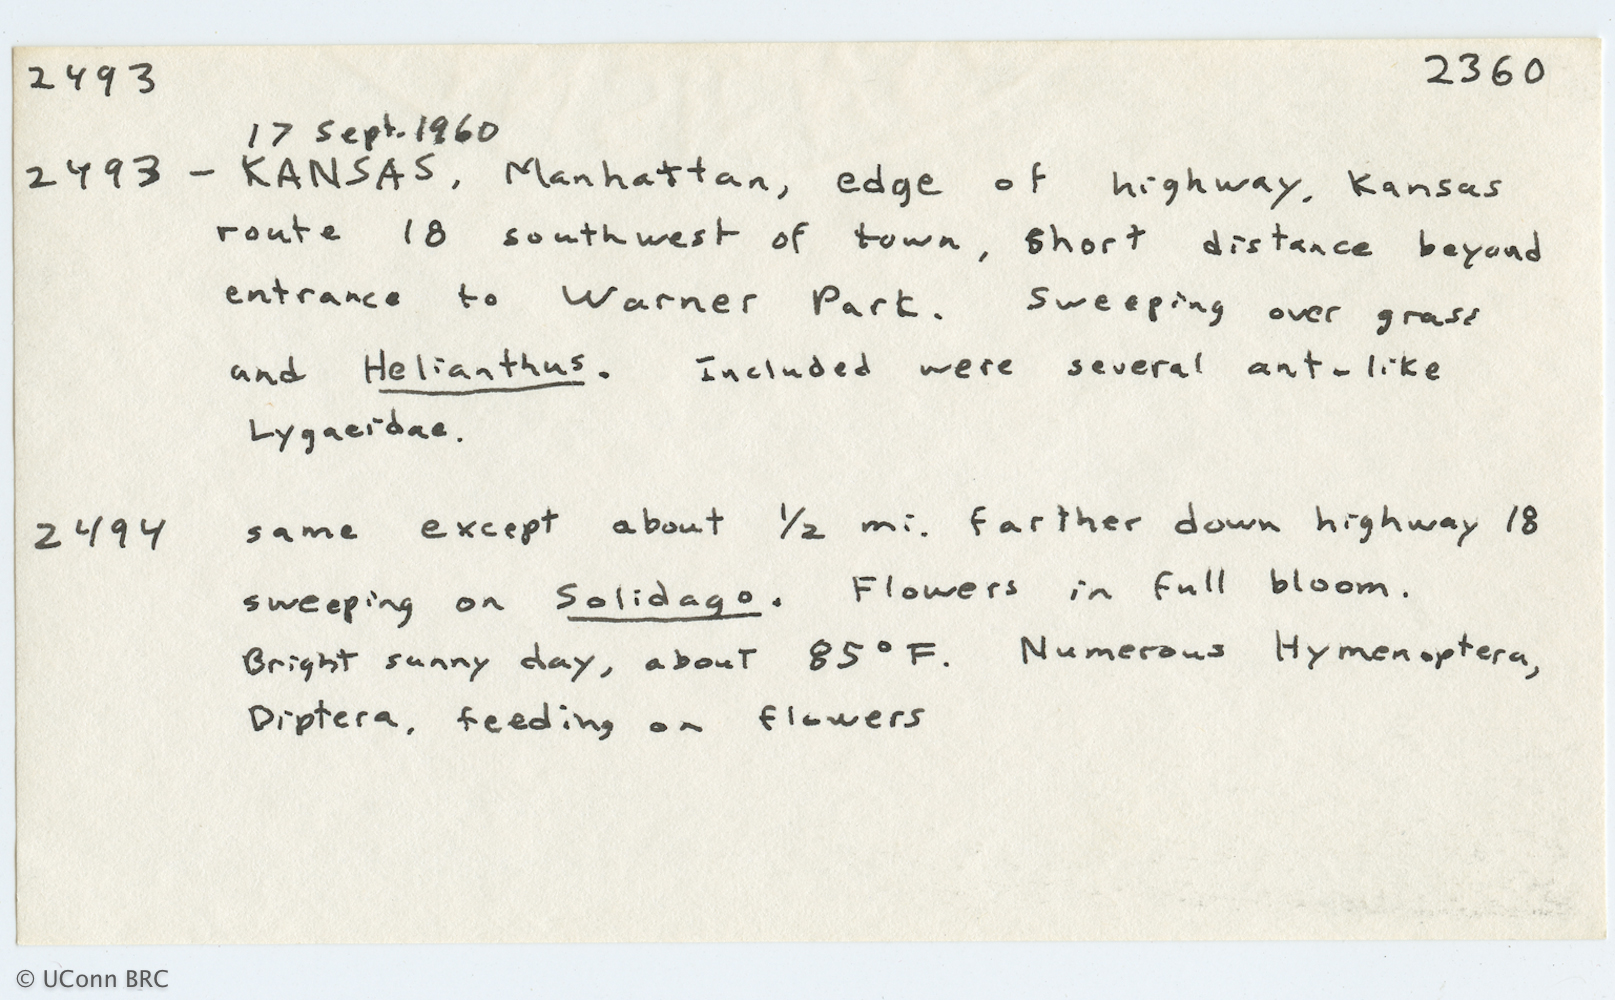 2493 2360
17 Sept. 1960
2493 - KANSAS, Manhattan, edge of highway, Kansas
route 18 southwest of town, short distance beyond
entrance to Warner Park. Sweeping over grass
and Helianthus. Included were several ant-like
Lygaeidae.
2494 same except about 1/2 mi. farther down highway 18
sweeping on Solidago. Flowers in full bloom.
Bright sunny day, about 85° F. Numerous Hymenoptera,
Diptera, feeding on flowers
© UConn BRC